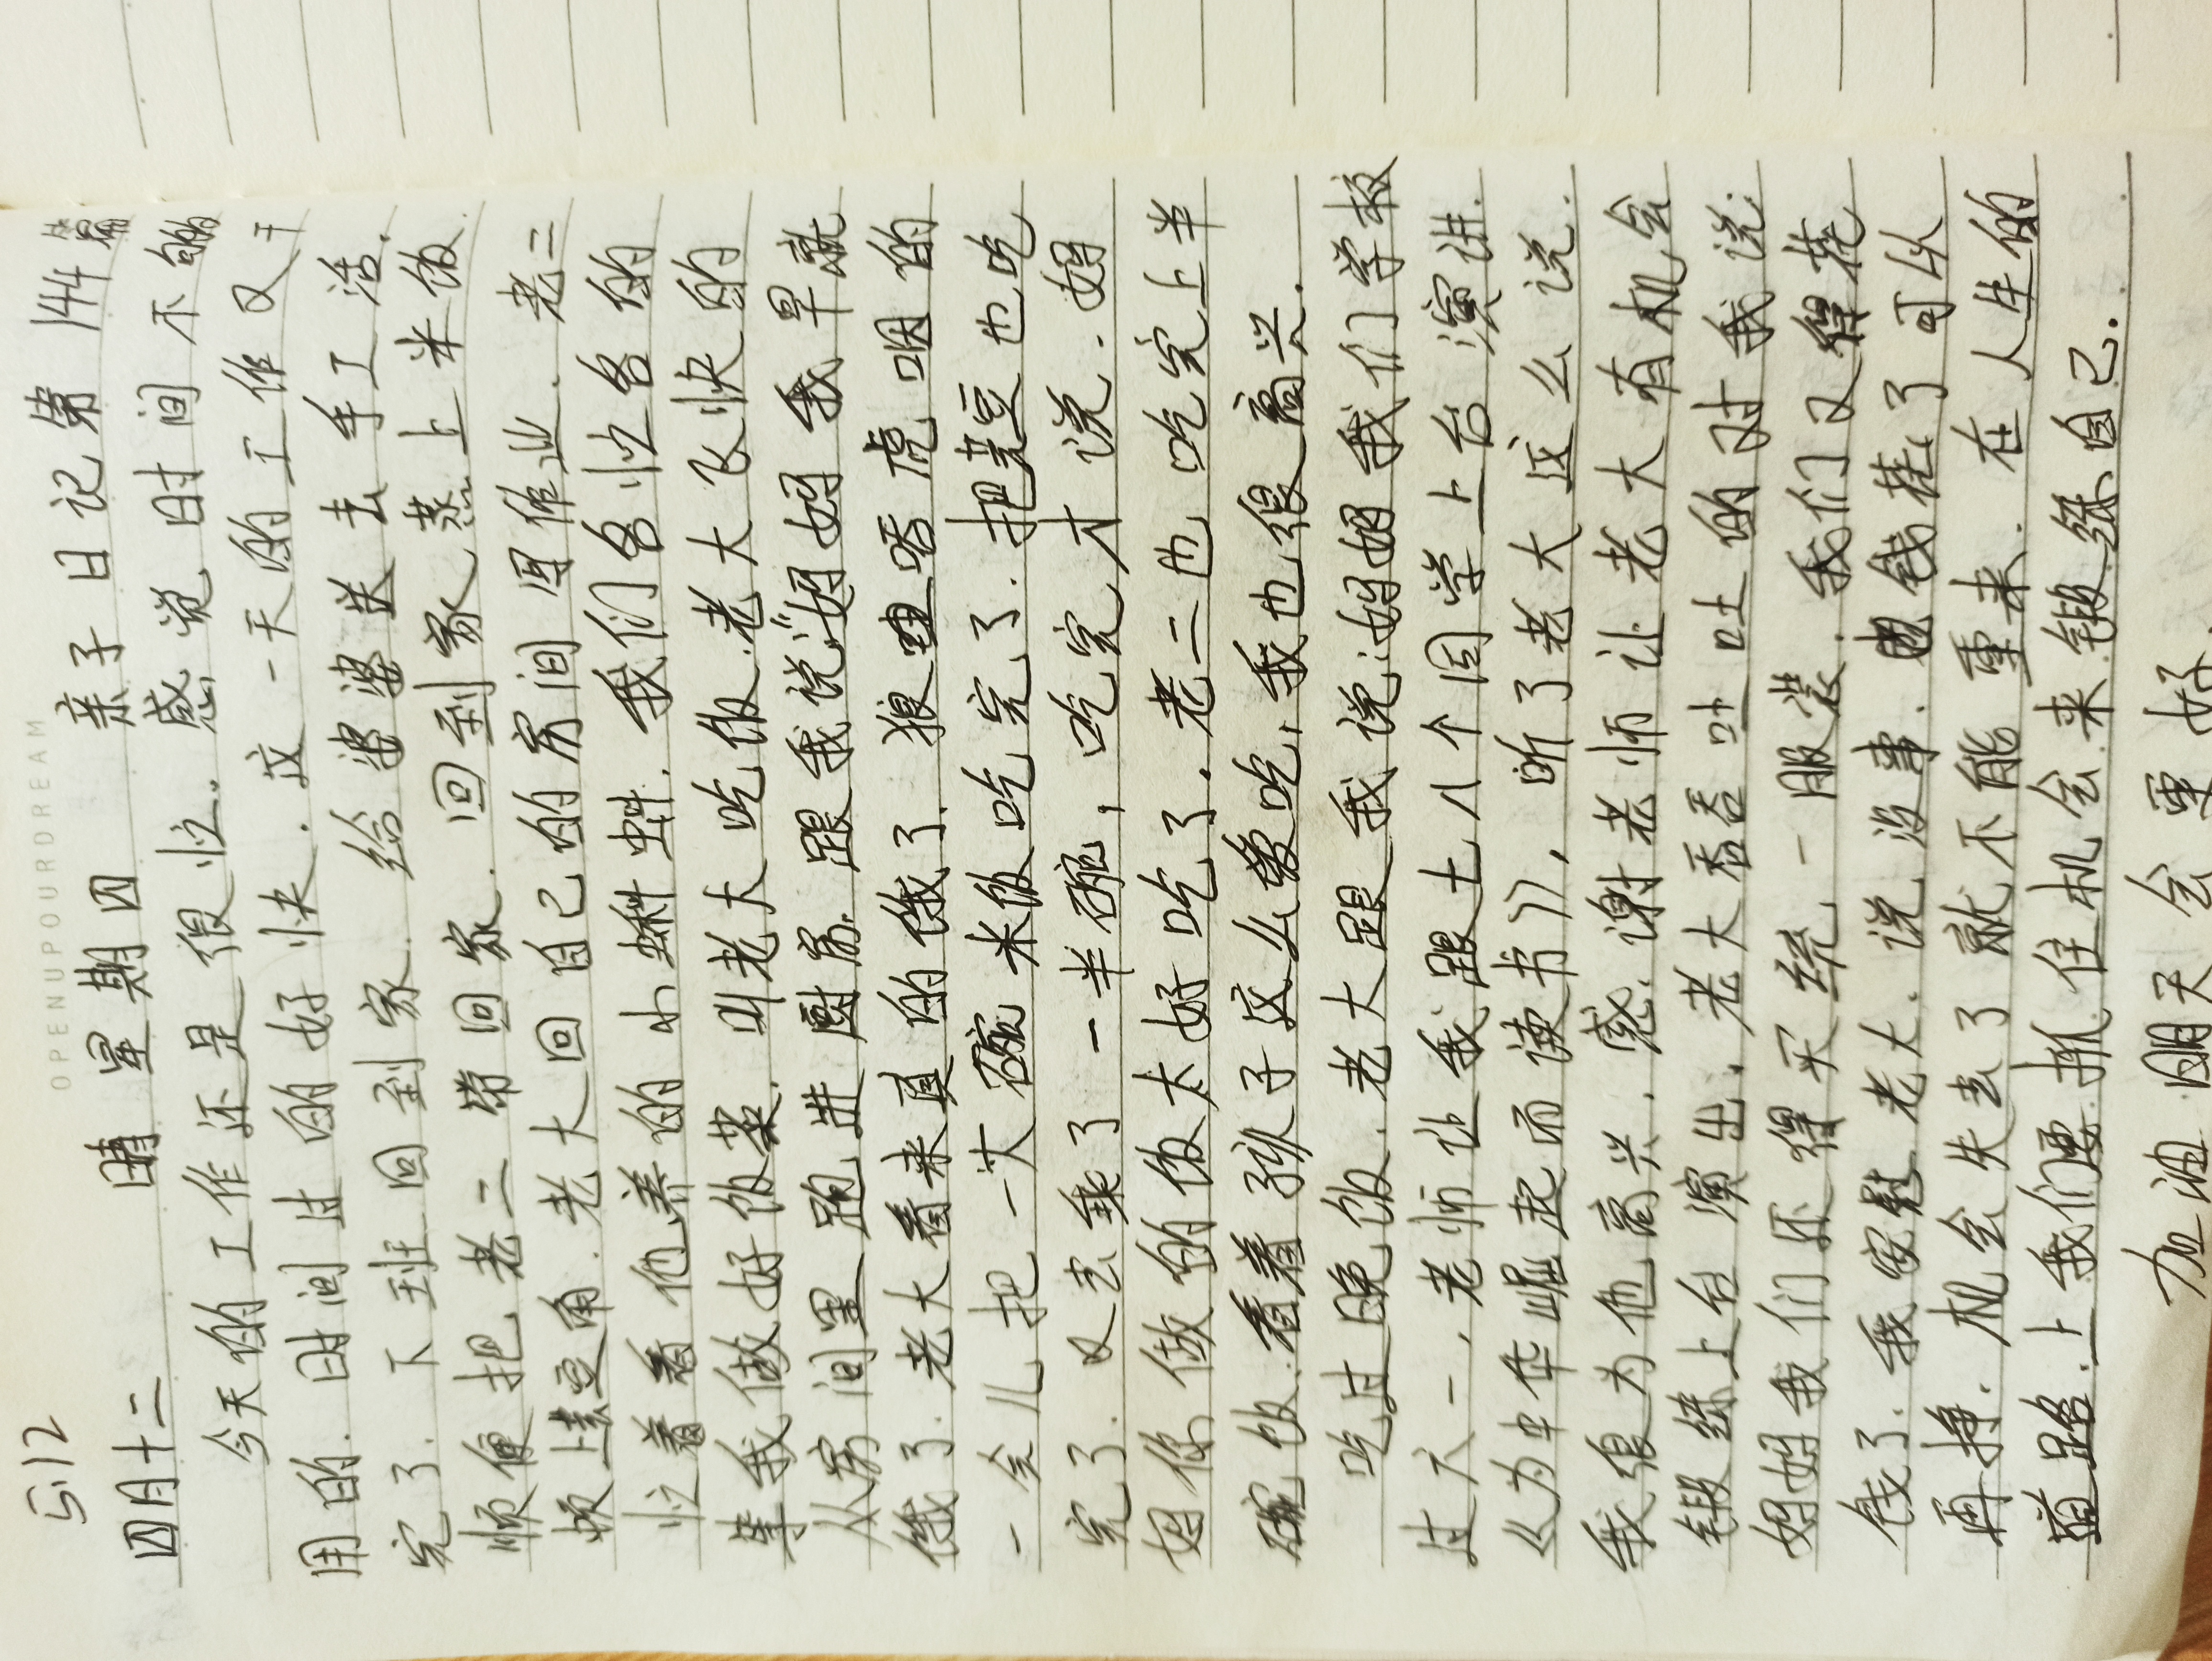 OPENUPOURDREAM
5.12
四月十二 晴 星期四 亲子日记第144篇
今天的工作还是很忙。感觉时间不够
用的.时间过的好快.这一天的工作又干
完了.下班回到家.给婆婆送去手工活.
顺便把老二带回家.回到家蒸上米饭.
顿上芸豆角.老大回自己的房间写作业.老二
忙着看他养的小蝌蚪.我们各忙各的
等我做好饭菜.叫老大吃饭.老大飞快的
从房间里跑进厨房.跟我说:"妈妈我早就
饿了.老大看来真的饿了.狼吞虎咽的
一会儿把一大碗米饭吃完了.把芸豆也吃
完了.又去乘了一半碗,吃完才说.妈
妈你做的饭太好吃了.老二也吃完上半
碗饭.看着孩子这么爱吃,我也很高兴.
吃过晚饭.老大跟我说:妈妈我们学校
过六一,老师让我跟七八个同学上台演讲.
《为中华崛起而读书》,听了老大这么说.
我很为他高兴.感谢老师让老大有机会
锻练上台演出.老大吞吞吐吐的对我说:
妈妈我们还得买统一服装.我们又得花
钱了.我安慰老大.说没事.钱花了可以
再挣.机会失去了就不能重来.在人生的
道路上我们要抓住机会来锻练自己.
加油明天会更好.